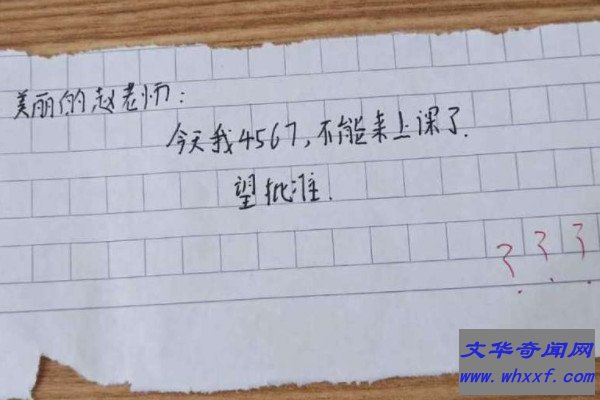 美丽的赵老师:
今天我4567,不能来上课了.
望批准.
???
文华奇闻网
www.whxxf.com